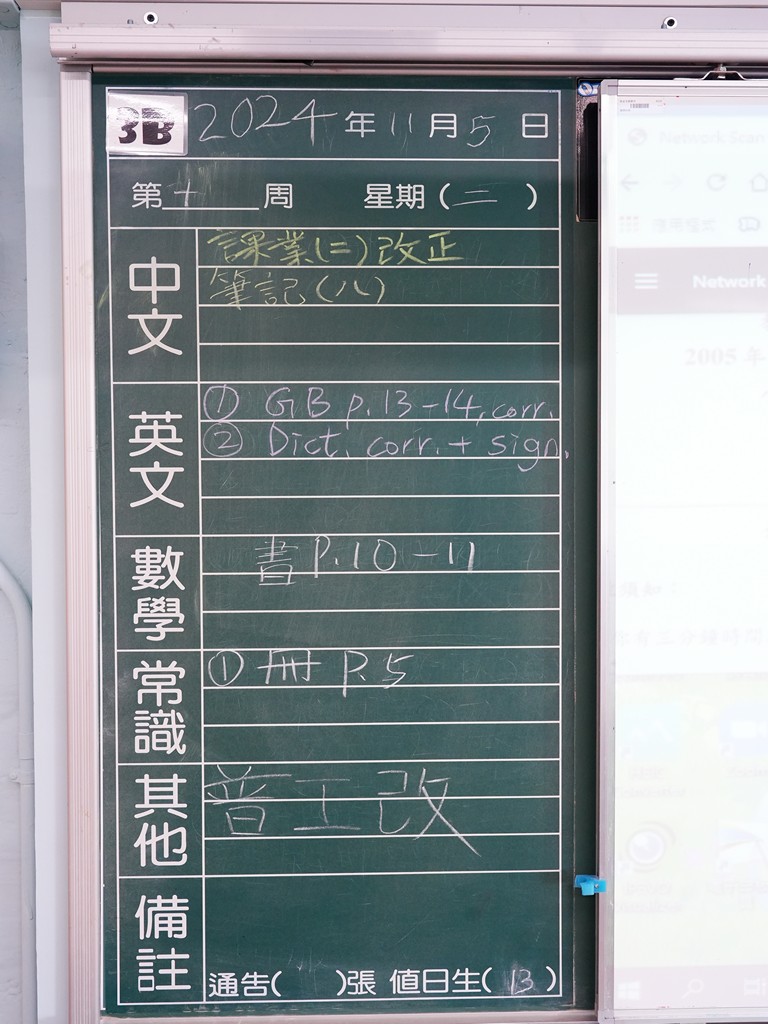 3B 2024年11月5日
第十周 星期(二)
中文
課業(二)改正
筆記(八)
英文
① GB p.13-14, corr.
② Dict. corr. + sign.
數學
書 P.10-11
常識
① 冊 P.5
其他
普工改
備註
通告( )張 值日生(13)
Network Scan
應用程式
Network
2005 年